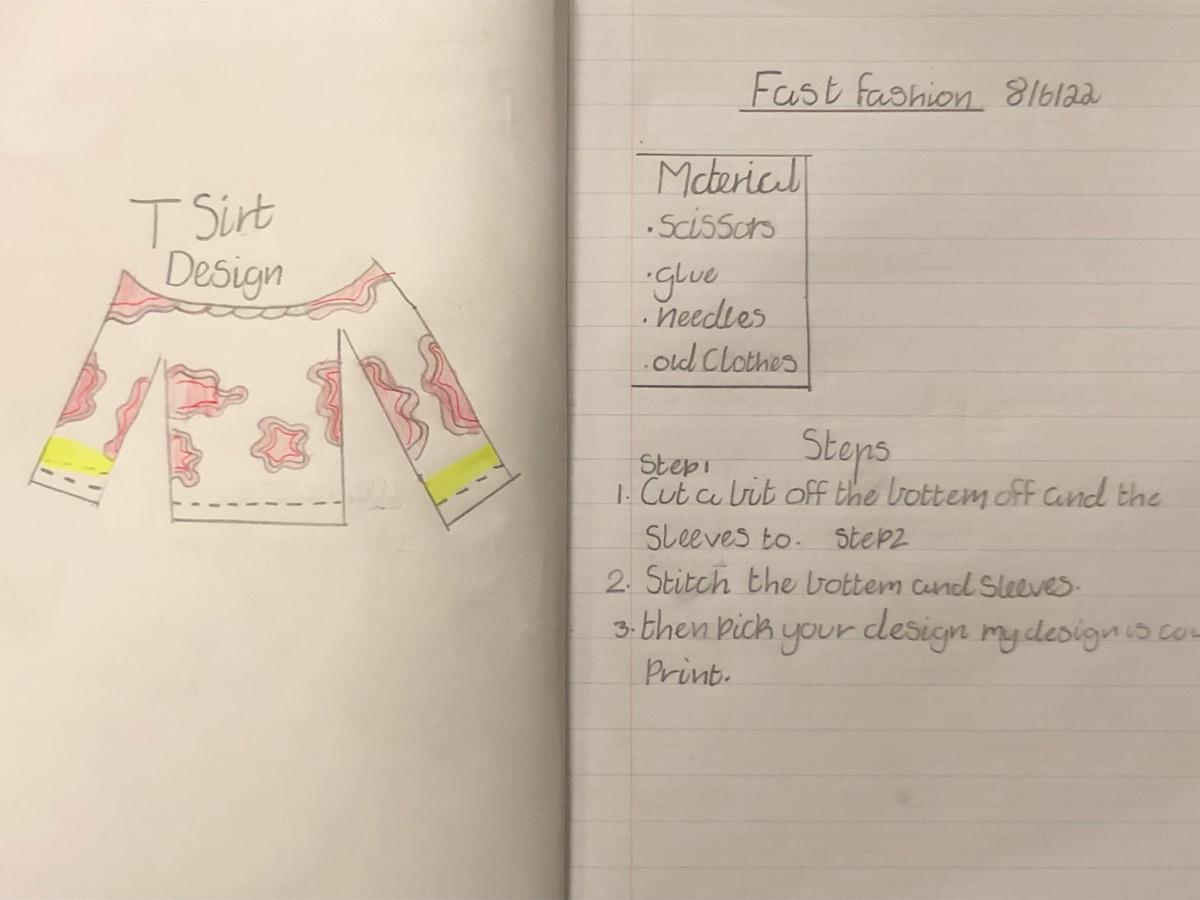 T Sirt
Design
Fast fashion 8/6/22
Material
• Scissors
• glue
• needles
• old Clothes
Steps
Step1
1. Cut a bit off the bottem off and the
Sleeves to. Step2
2. Stitch the bottem and Sleeves.
3. then pick your design my design is
Print.